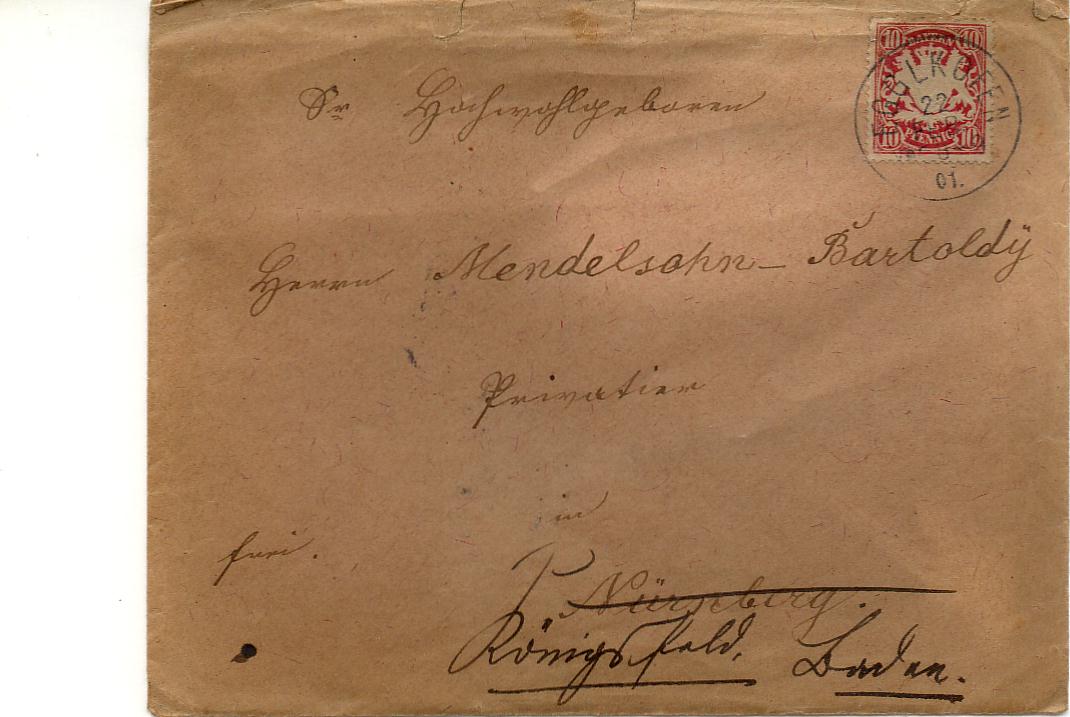 10 10
10 PFENNIG 10
22
FEB
01.
Sr Hochwohlgeboren
Herrn Mendelsohn- Bartoldÿ
Privatier
in
frei.
Nürnberg.
Königsfeld, Baden.